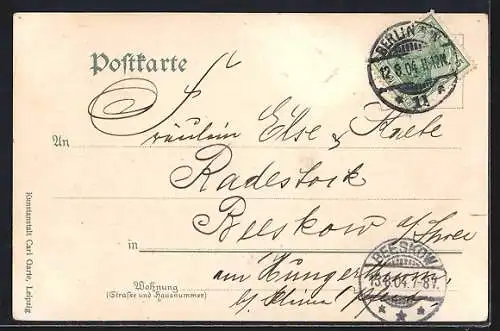 Postkarte
BERLIN S.W.
12.8.04. 11-12N.
11
An Fräulein Else & Kaete
Radestock
in Beeskow a/Spree
Wohnung
(Straße und Hausnummer)
am Hungerturm,
BEESKOW
13.8.04. 7-8V.
Kunstanstalt Carl Garte, Leipzig